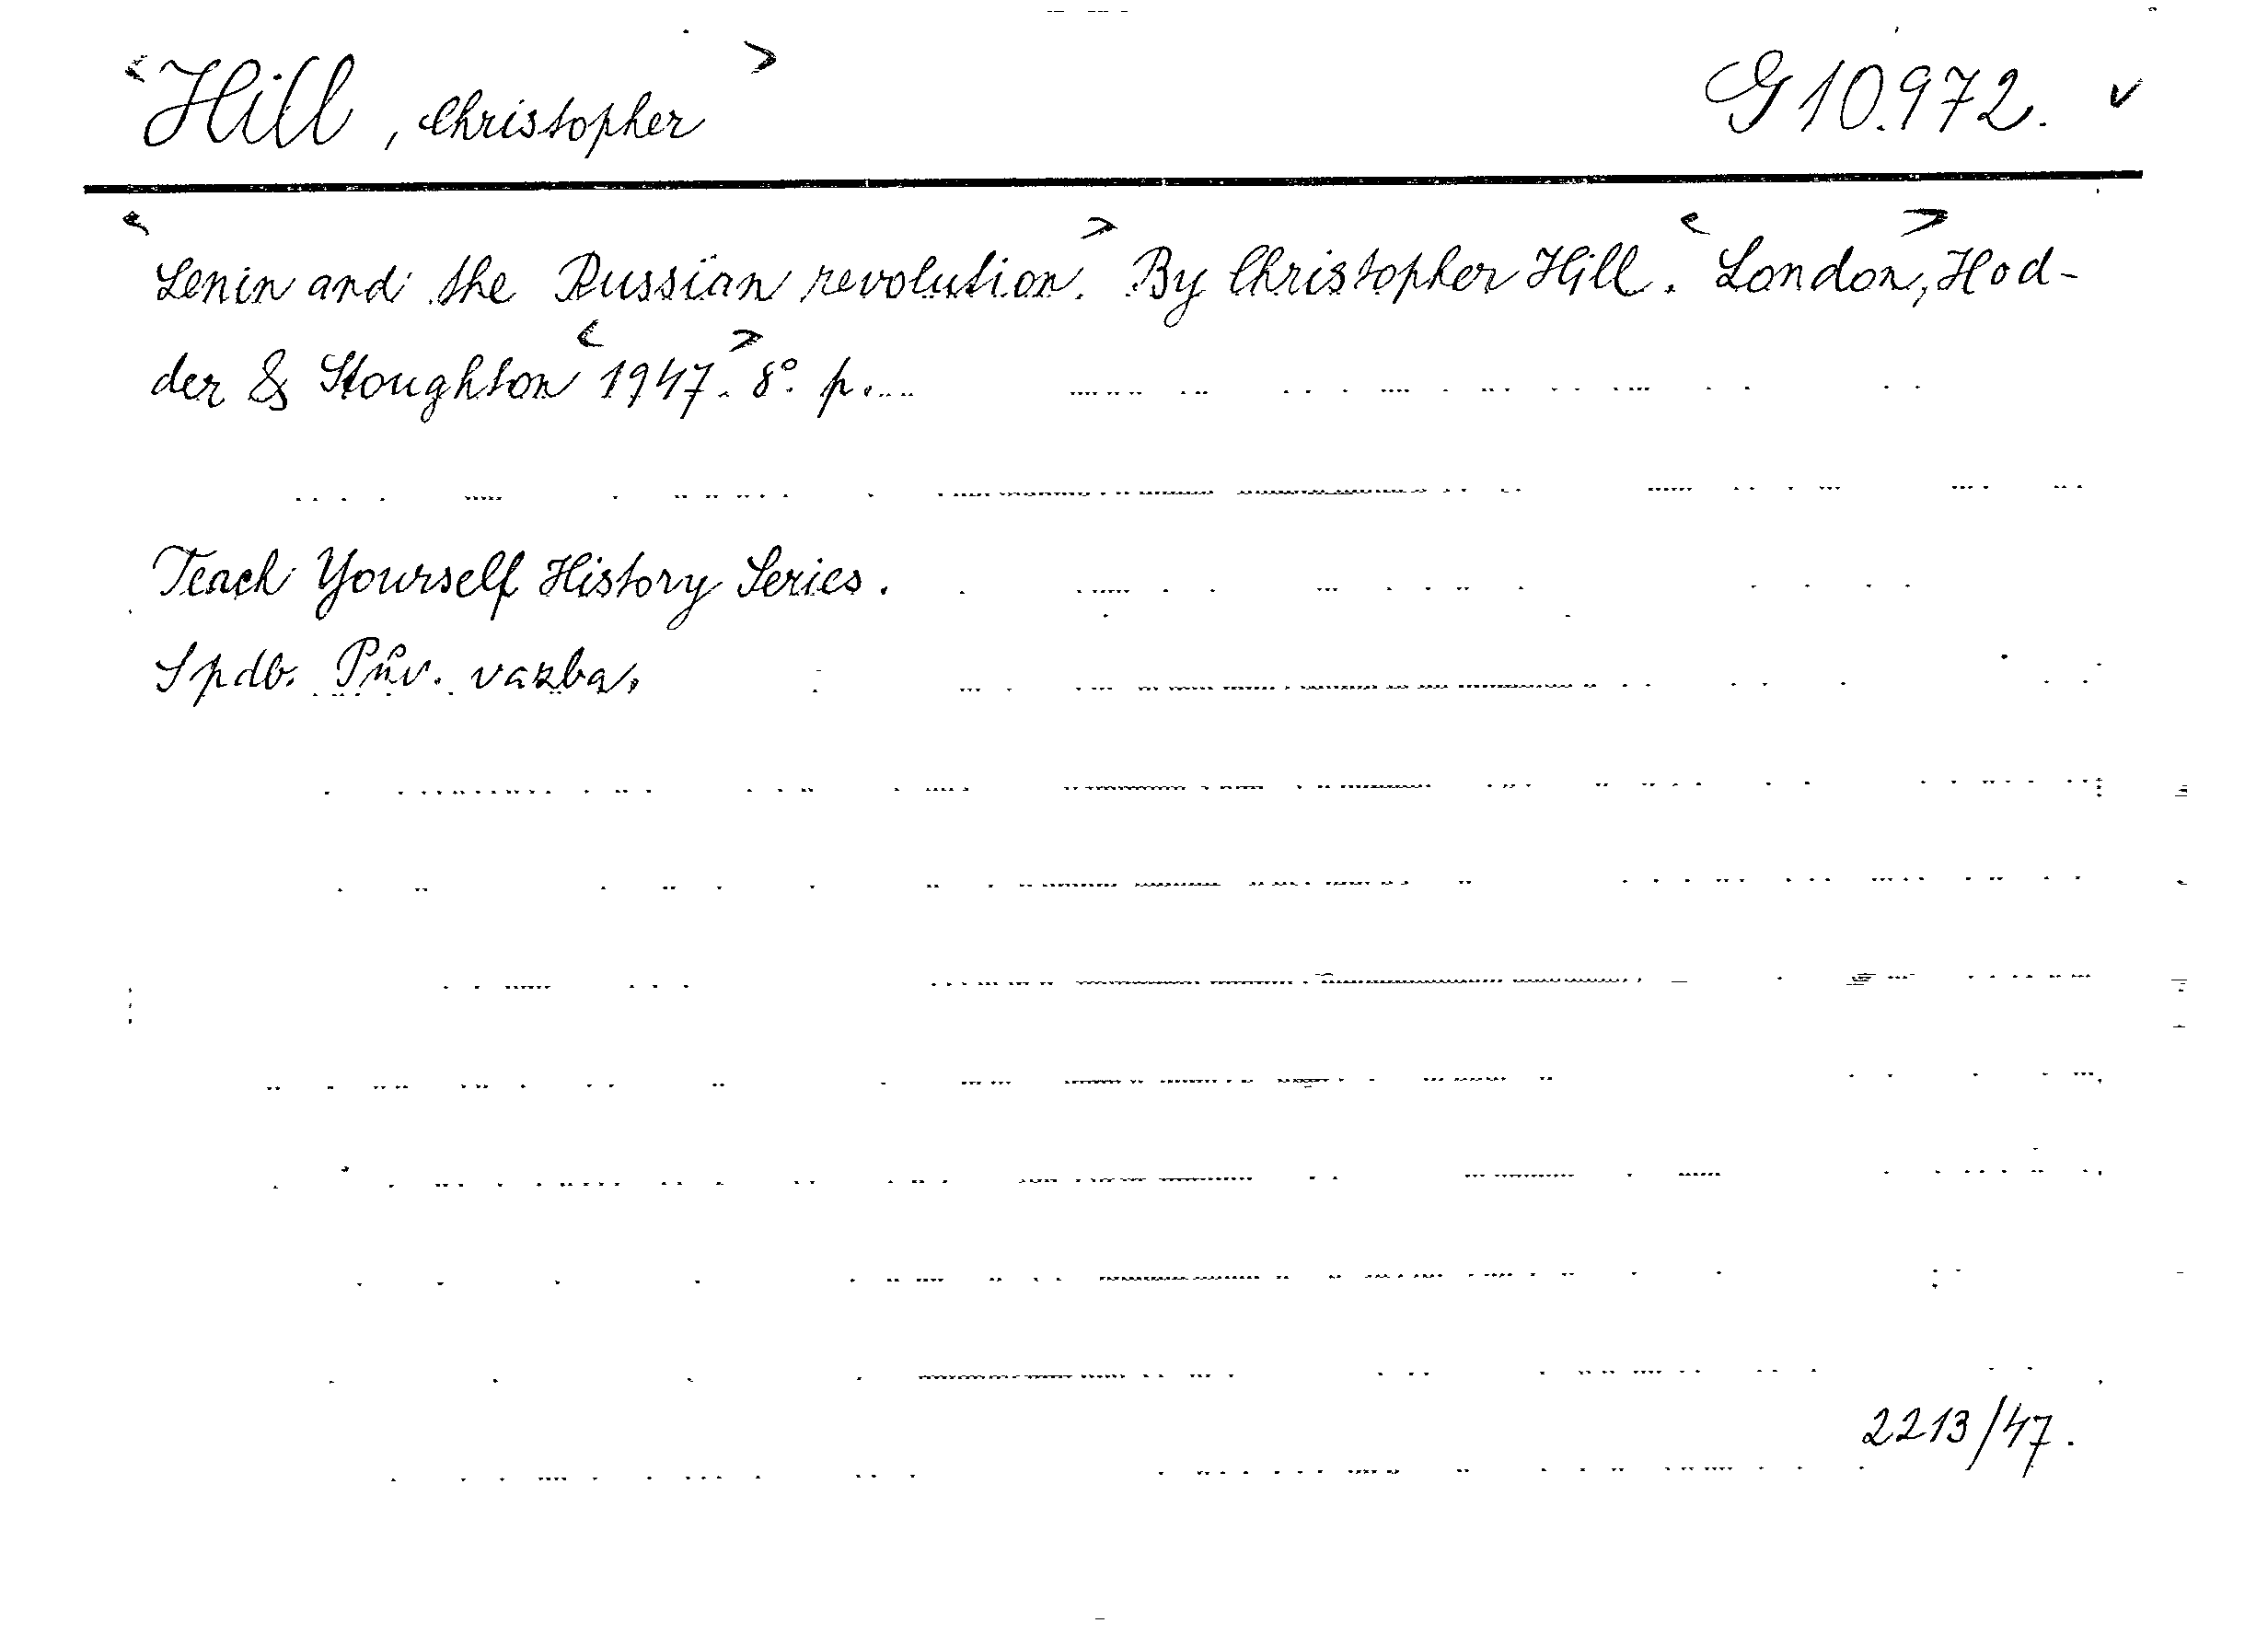 <Hill, Christopher> G 10.972. ✓
<Lenin and the Russian revolution.> By Christopher Hill. <London>, Hod-
der & Stoughton <1947.> 8°. p....
Teach Yourself History Series.
Spdb. Pův. vazba.
2213/47.